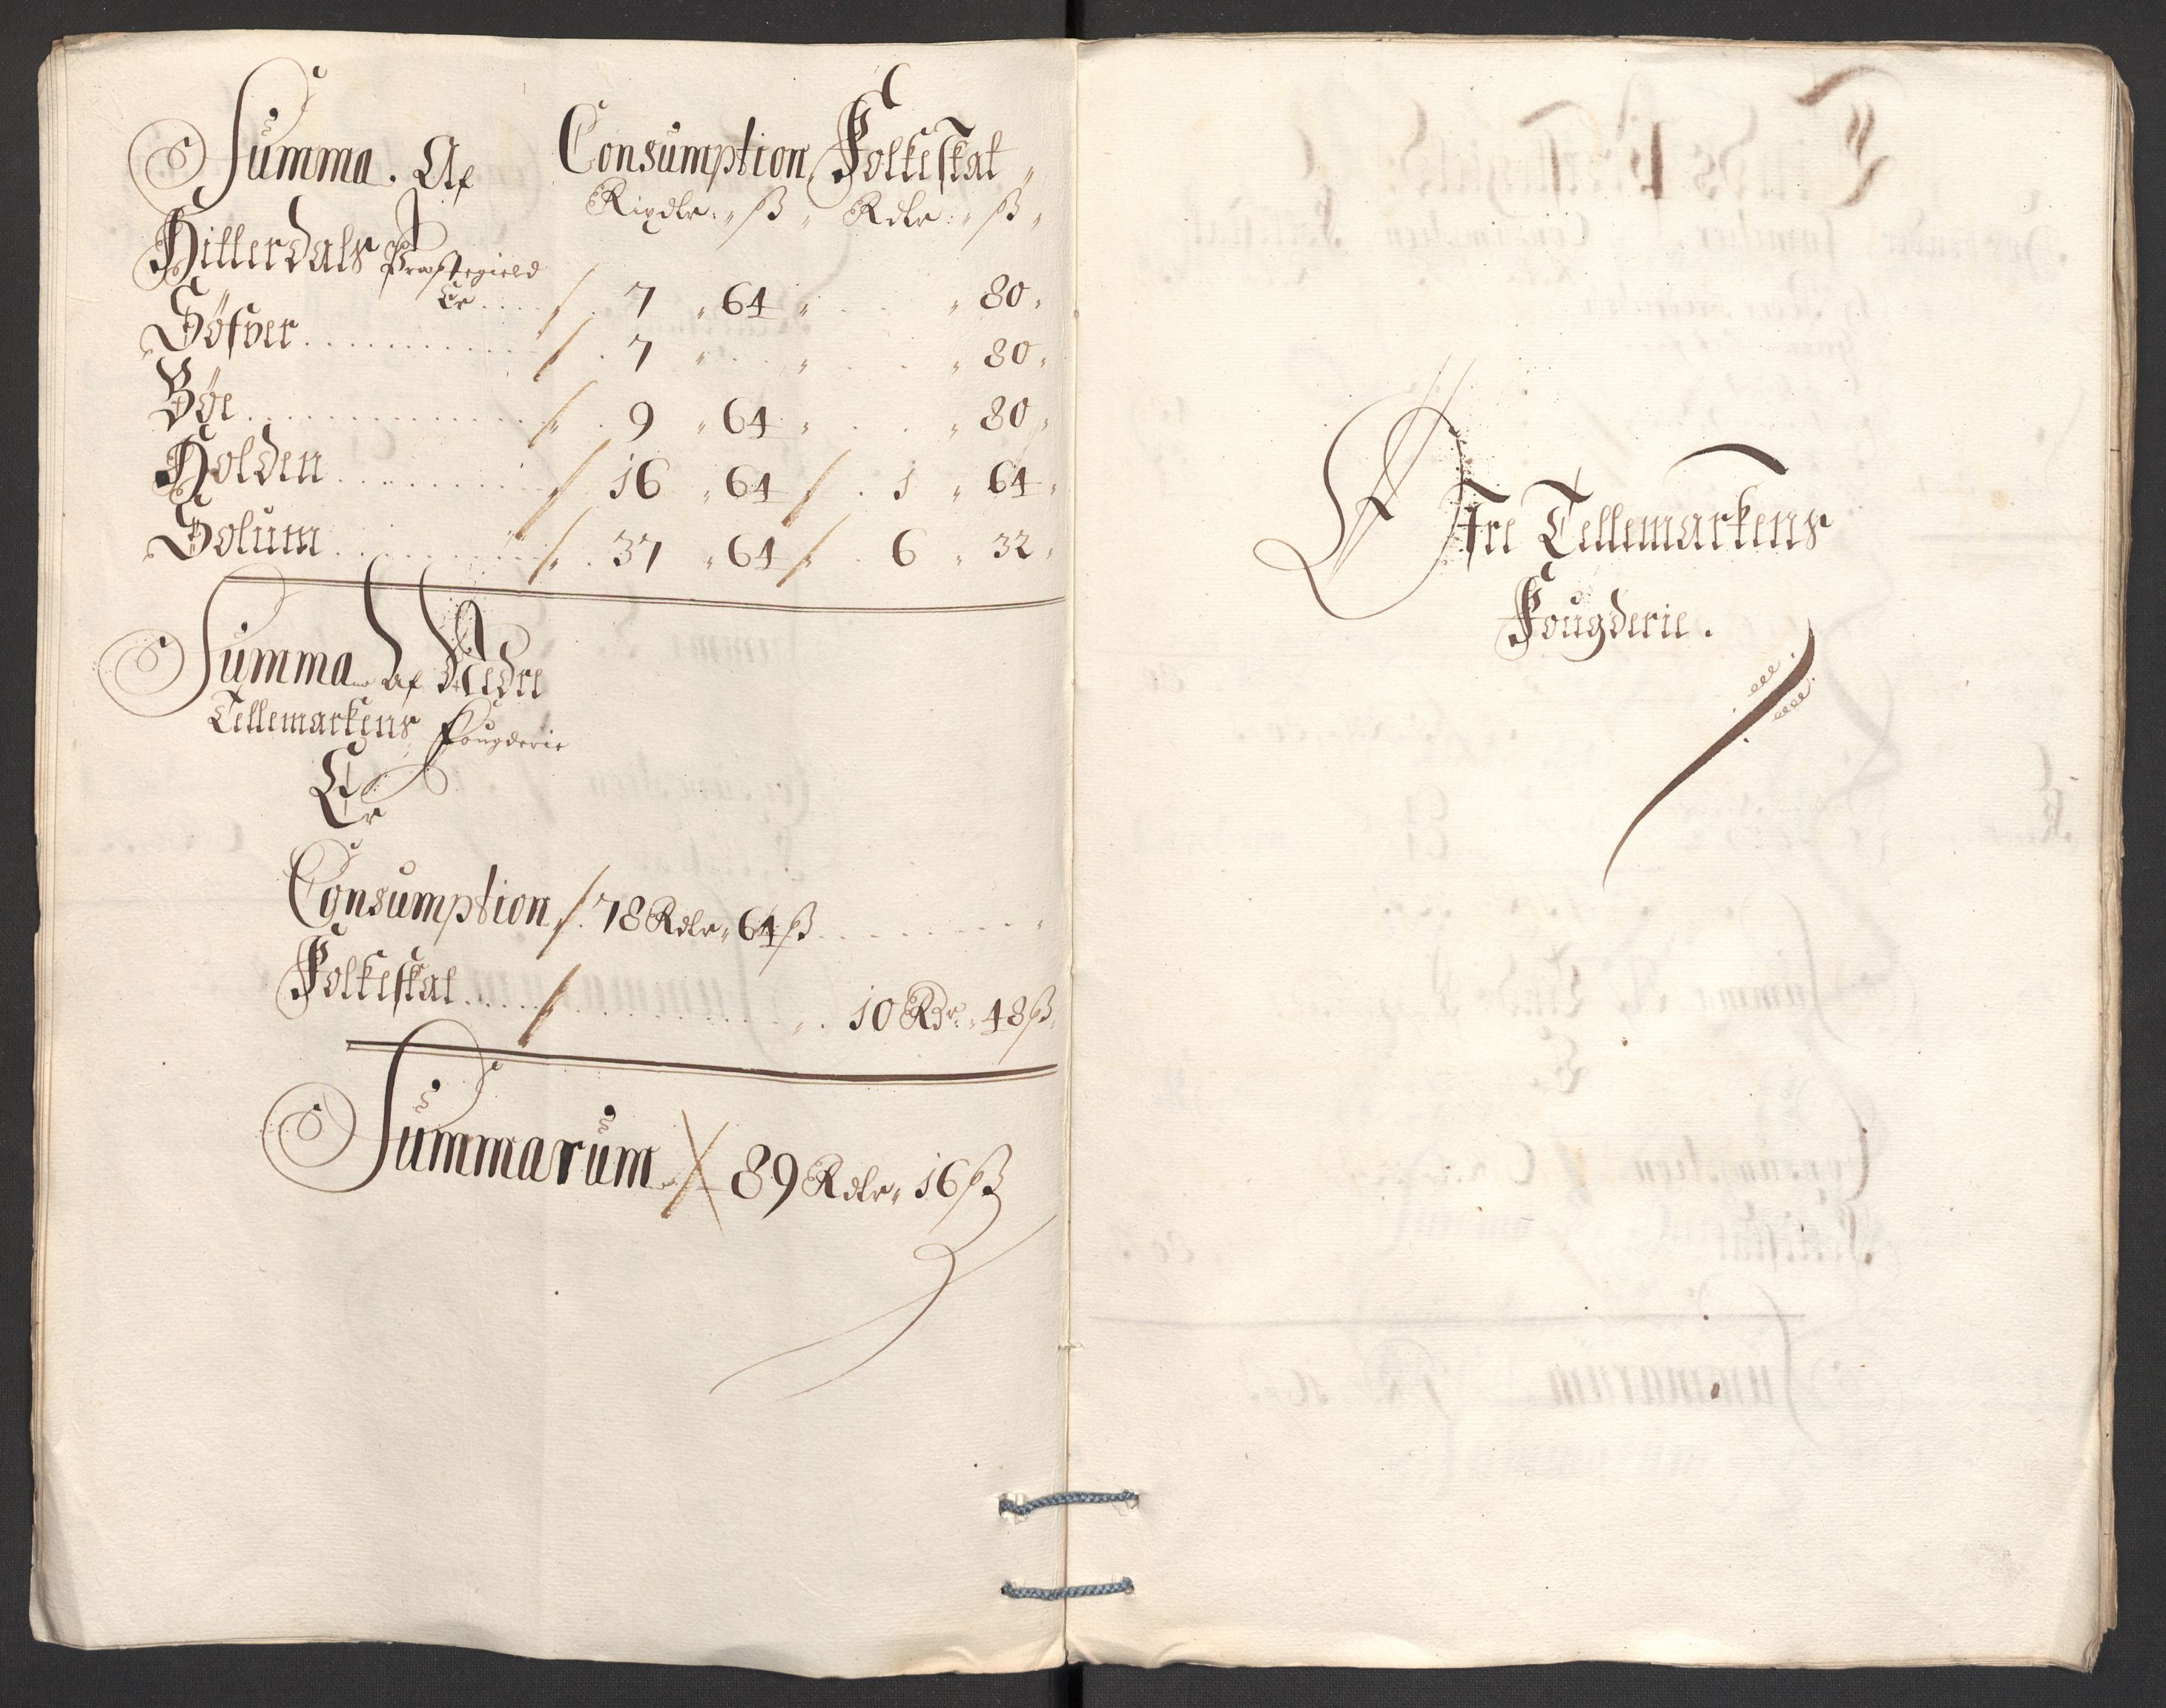 Summa. Af Consumption Folkeskat
Rixdlr: ß Rdlr: ß
Hitterdals Præstegield
Er .... 7 64 80
Söfver .... 7 80
Böe .... 9 64 80
Holden .... 16 64 1 64
Solum .... 37 64 6 32
Summa Af Nedre
Tellemarkens Fougderie
Er
Consumption 78 Rdlr 64 ß
Folkeskat .... 10 Rdr. 48 ß
Summarum 89 Rdlr 16 ß
Öfre Tellemarkens
Fougderie.